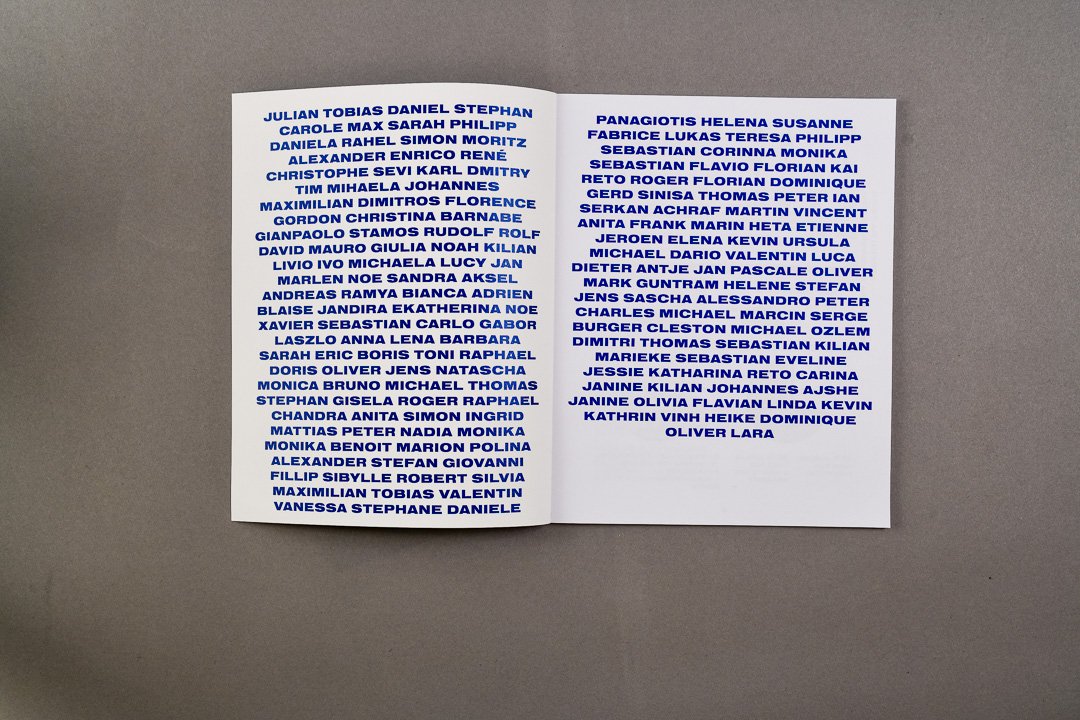 JULIAN TOBIAS DANIEL STEPHAN
CAROLE MAX SARAH PHILIPP
DANIELA RAHEL SIMON MORITZ
ALEXANDER ENRICO RENÉ
CHRISTOPHE SEVI KARL DMITRY
TIM MIHAELA JOHANNES
MAXIMILIAN DIMITROS FLORENCE
GORDON CHRISTINA BARNABE
GIANPAOLO STAMOS RUDOLF ROLF
DAVID MAURO GIULIA NOAH KILIAN
LIVIO IVO MICHAELA LUCY JAN
MARLEN NOE SANDRA AKSEL
ANDREAS RAMYA BIANCA ADRIEN
BLAISE JANDIRA EKATHERINA NOE
XAVIER SEBASTIAN CARLO GABOR
LASZLO ANNA LENA BARBARA
SARAH ERIC BORIS TONI RAPHAEL
DORIS OLIVER JENS NATASCHA
MONICA BRUNO MICHAEL THOMAS
STEPHAN GISELA ROGER RAPHAEL
CHANDRA ANITA SIMON INGRID
MATTIAS PETER NADIA MONIKA
MONIKA BENOIT MARION POLINA
ALEXANDER STEFAN GIOVANNI
FILLIP SIBYLLE ROBERT SILVIA
MAXIMILIAN TOBIAS VALENTIN
VANESSA STEPHANE DANIELE
PANAGIOTIS HELENA SUSANNE
FABRICE LUKAS TERESA PHILIPP
SEBASTIAN CORINNA MONIKA
SEBASTIAN FLAVIO FLORIAN KAI
RETO ROGER FLORIAN DOMINIQUE
GERD SINISA THOMAS PETER IAN
SERKAN ACHRAF MARTIN VINCENT
ANITA FRANK MARIN HETA ETIENNE
JEROEN ELENA KEVIN URSULA
MICHAEL DARIO VALENTIN LUCA
DIETER ANTJE JAN PASCALE OLIVER
MARK GUNTRAM HELENE STEFAN
JENS SASCHA ALESSANDRO PETER
CHARLES MICHAEL MARCIN SERGE
BURGER CLESTON MICHAEL OZLEM
DIMITRI THOMAS SEBASTIAN KILIAN
MARIEKE SEBASTIAN EVELINE
JESSIE KATHARINA RETO CARINA
JANINE KILIAN JOHANNES AJSHE
JANINE OLIVIA FLAVIAN LINDA KEVIN
KATHRIN VINH HEIKE DOMINIQUE
OLIVER LARA